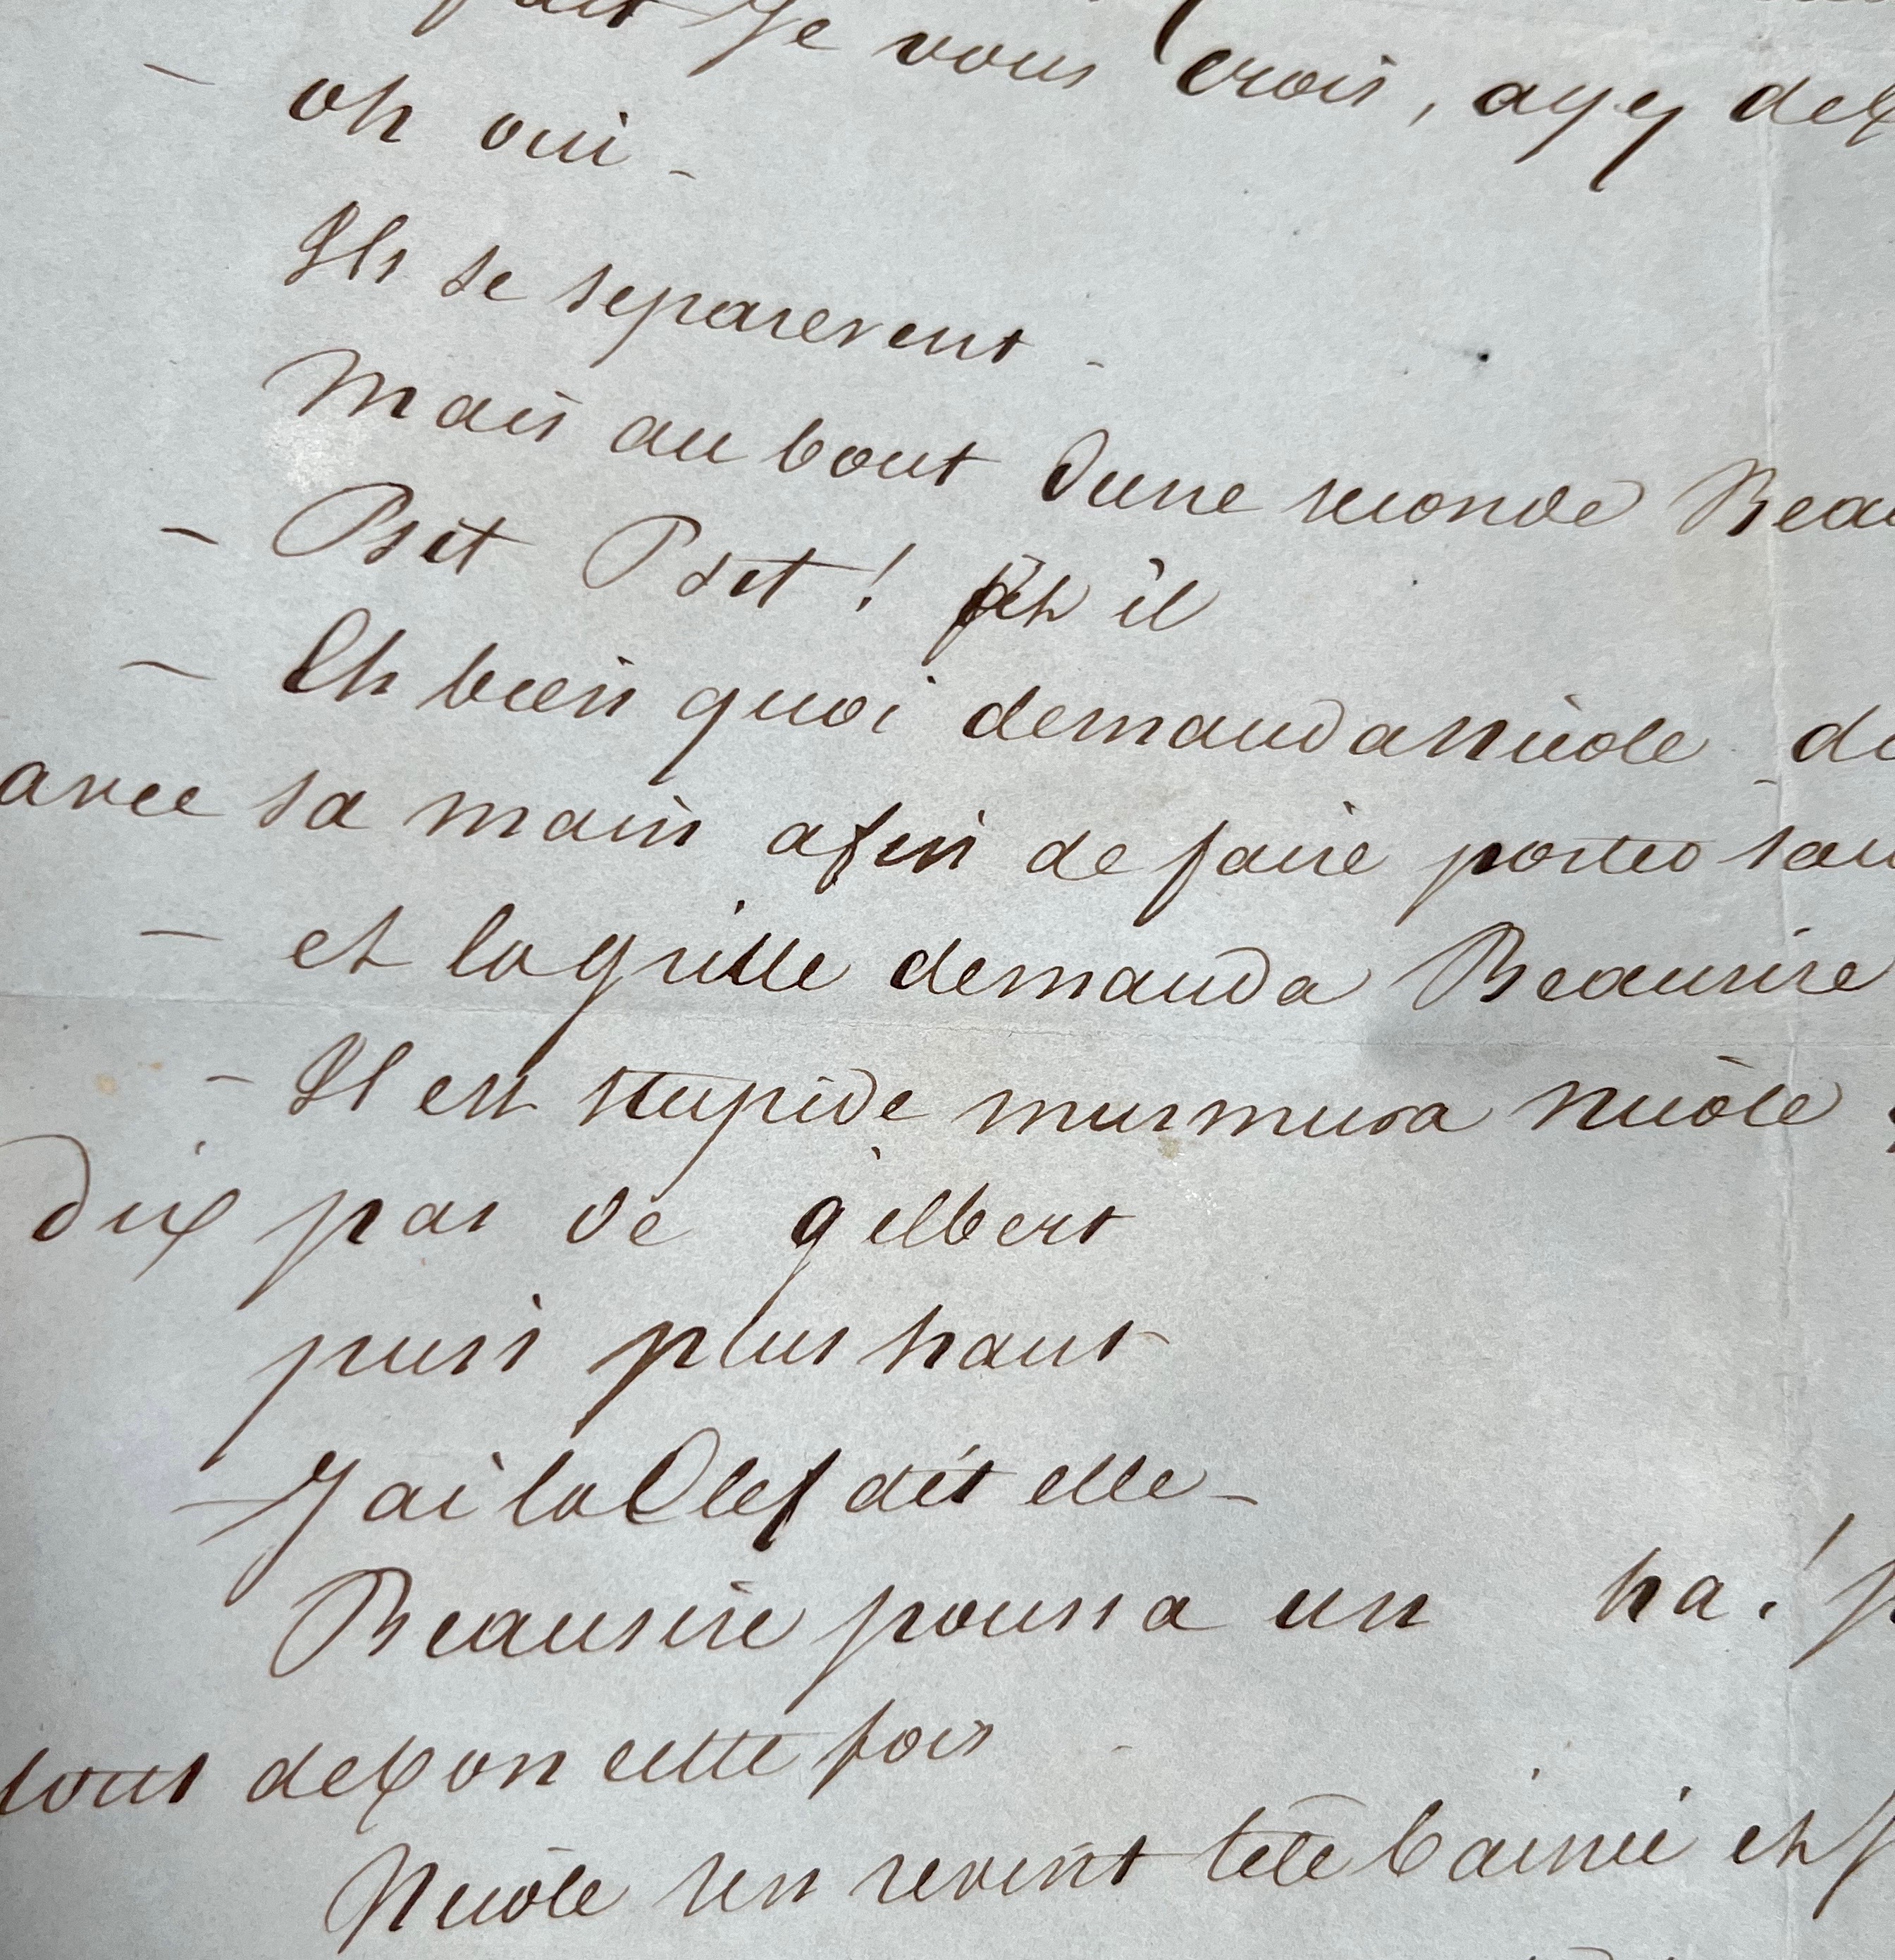 Je vous crois, ayez de
– oh oui –
Ils se separerent –
Mais au bout dune seconde Beau
– Psit Psit ! fit il
– Eh bien quoi demanda nicole de
avec sa main afin de faire porter
– et la grille demanda Beausire
– Il est stupide murmura nicole
dix pas de gilbert
puis plus haut
– J ai la Clef dit elle –
Beausire poussa un ha !
tout de bon cette fois
Nicole sen revint tete baissée et